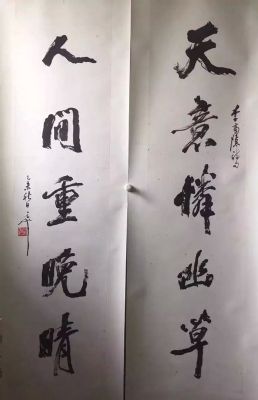 天意怜幽草
李商隐诗句
人间重晚晴